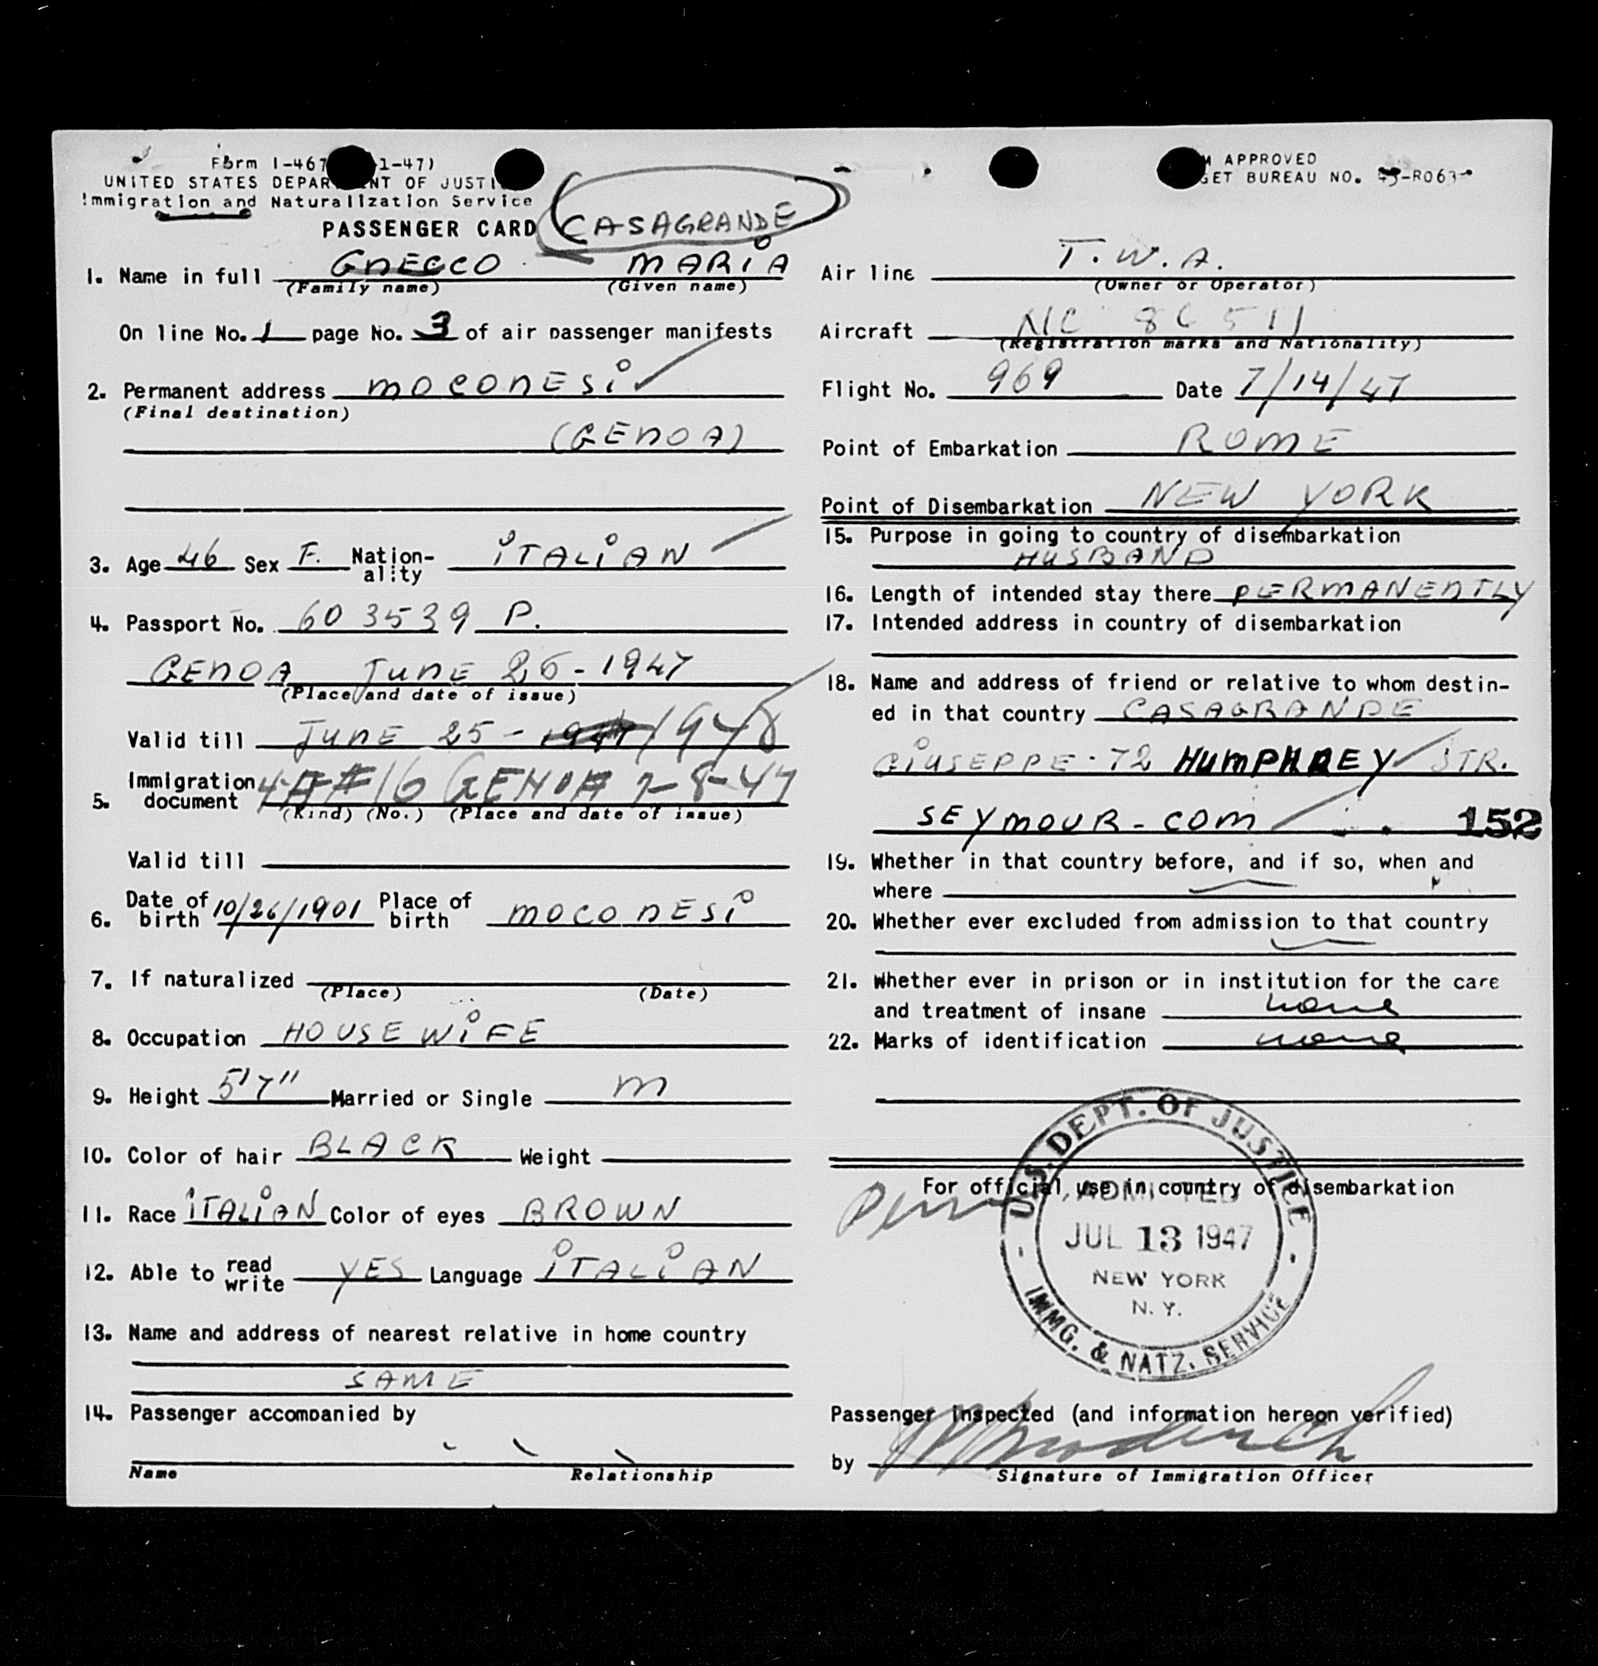 Form I-467 1-47)
UNITED STATES DEPAR NT OF JUSTI
Immigration and Naturalization Service
PASSENGER CARD
CASAGRANDE
1. Name in full GNECCO MARIA
(Family name) (Given name)
On line No. 1 page No. 3 of air passenger manifests
2. Permanent address MOCONESI
(Final destination)
(GENOA)
3. Age 46 Sex F. Nation-ality ITALIAN
4. Passport No. 603539 P.
GENOA JUNE 26-1947
(Place and date of issue)
Valid till JUNE 25-1947 1948
5. Immigration document #16 GENOA 7-8-47
(Kind) (No.) (Place and date of issue)
Valid till
6. Date of birth 10/26/1901 Place of birth MOCONESI
7. If naturalized
(Place) (Date)
8. Occupation HOUSEWIFE
9. Height 5'7" Married or Single M
10. Color of hair BLACK Weight
11. Race ITALIAN Color of eyes BROWN
12. Able to read write YES Language ITALIAN
13. Name and address of nearest relative in home country
SAME
14. Passenger accompanied by
Name Relationship
M APPROVED
GET BUREAU NO. -R063
Air line T.W.A.
(Owner or Operator)
Aircraft NC 86511
(Registration marks and Nationality)
Flight No. 969 Date 7/14/47
Point of Embarkation ROME
Point of Disembarkation NEW YORK
15. Purpose in going to country of disembarkation
HUSBAND
16. Length of intended stay there PERMANENTLY
17. Intended address in country of disembarkation
18. Name and address of friend or relative to whom destin-
ed in that country CASAGRANDE
GIUSEPPE - 72 HUMPHREY STR.
SEYMOUR - COM 152
19. Whether in that country before, and if so, when and
where
20. Whether ever excluded from admission to that country
21. Whether ever in prison or in institution for the care
and treatment of insane none
22. Marks of identification none
For official use in country of disembarkation
U.S. DEPT. OF JUSTICE
ADMITTED
JUL 13 1947
NEW YORK
N. Y.
IMMG. & NATZ. SERVICE
Passenger inspected (and information hereon verified)
by
Signature of Immigration Officer